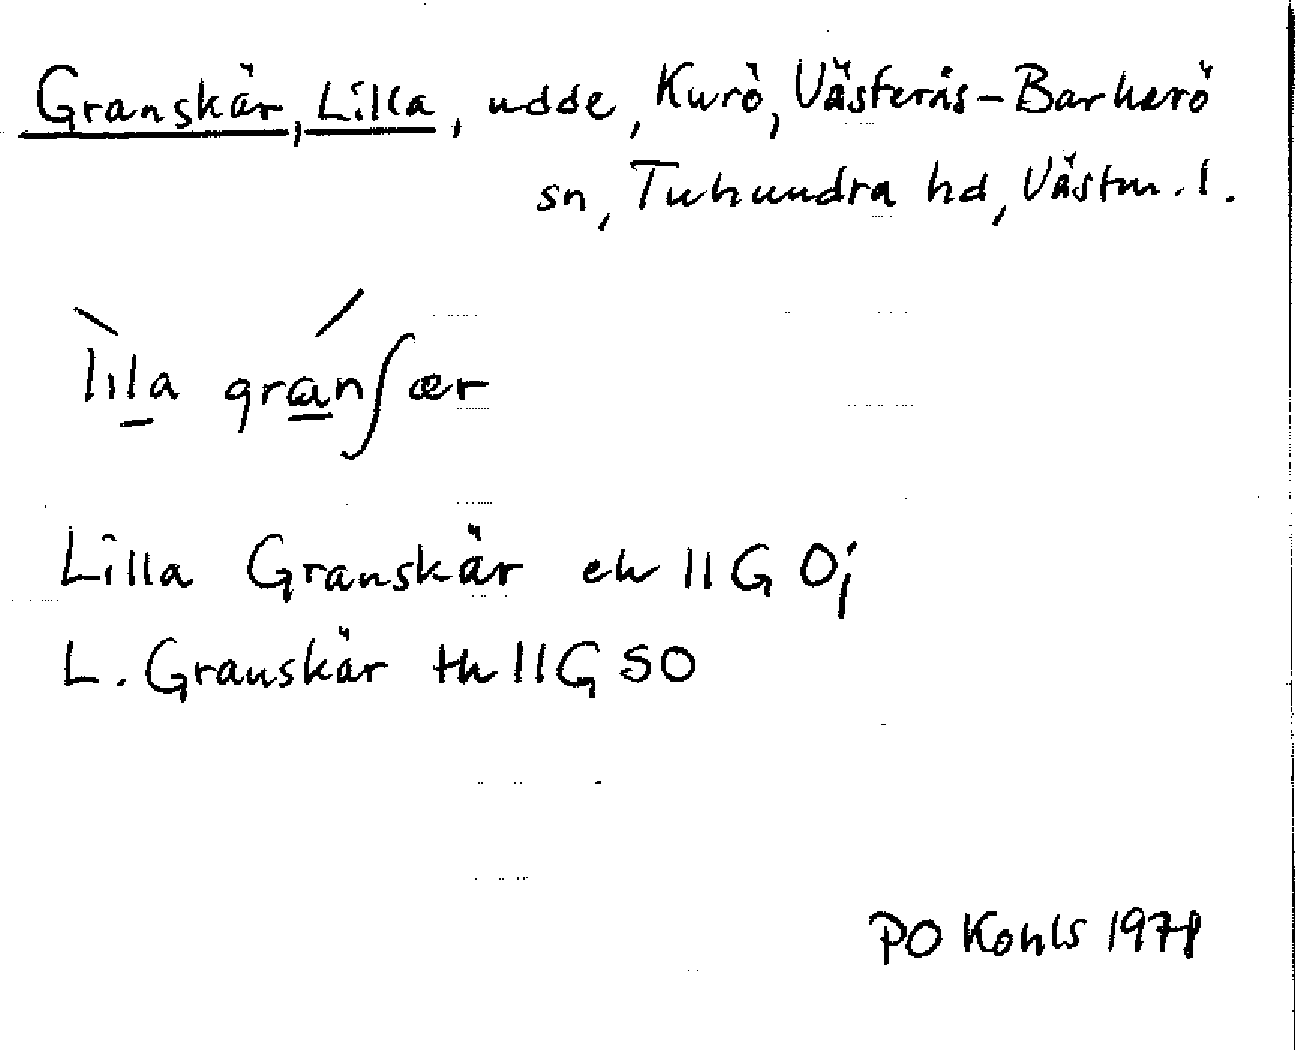 Granskär, Lilla, udde, Kurö, Västerås-Barkarö
sn, Tuhundra hd, Västm. l.
lıla granʃær
Lilla Granskär ek 11G 0j
L. Granskär tk 11G SO
PO Kohls 1978